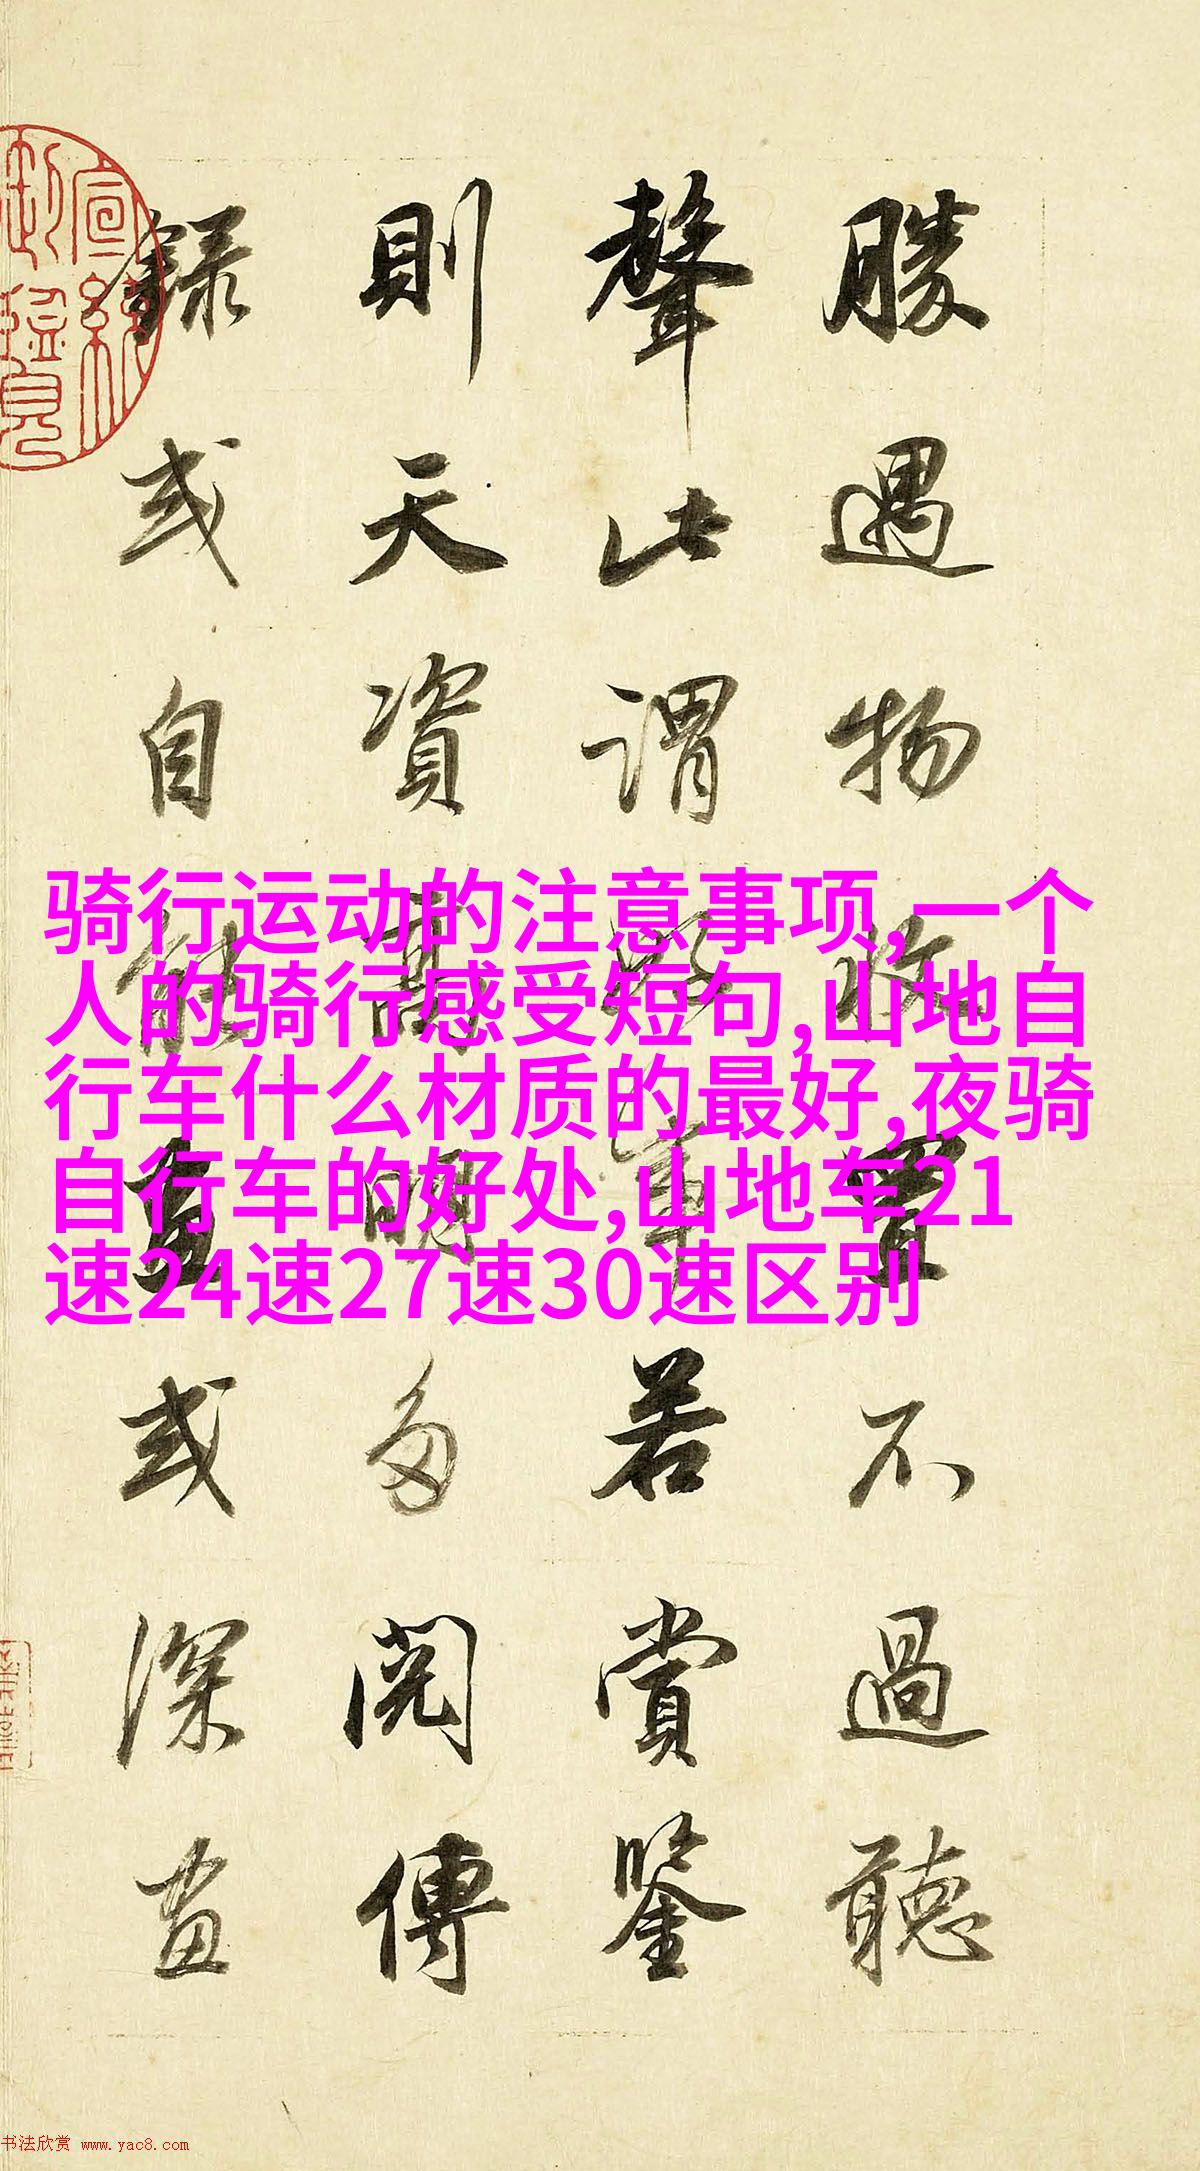 勝遇物收置不過聽
聲此謂好事若賞鑒
則天資高明多閱傳
錄或自能畫或深畫
宣統御覽
骑行运动的注意事项,一个
人的骑行感受短句,山地自
行车什么材质的最好,夜骑
自行车的好处,山地车21
速24速27速30速区别
书法欣赏 www.yac8.com